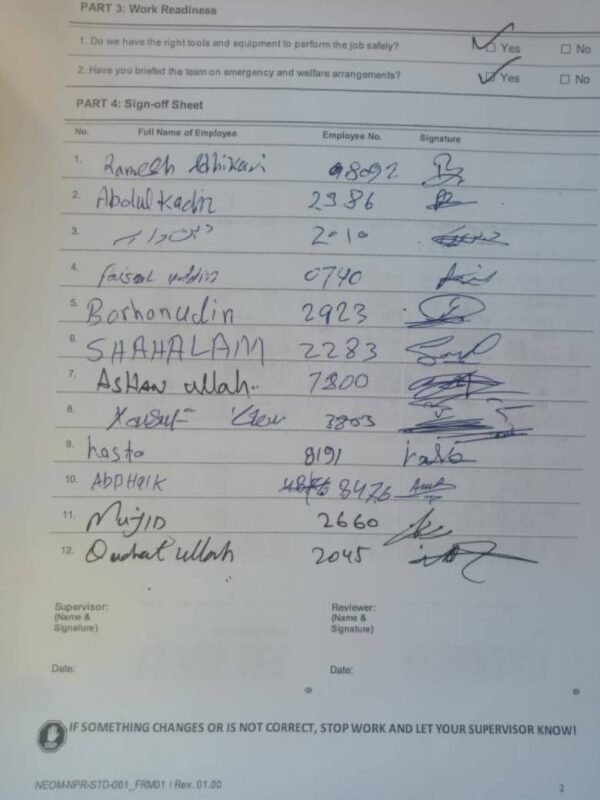 PART 3: Work Readiness
1. Do we have the right tools and equipment to perform the job safely? ☑ Yes ☐ No
2. Have you briefed the team on emergency and welfare arrangements? ☑ Yes ☐ No
PART 4: Sign-off Sheet
No. Full Name of Employee Employee No. Signature
1. Ramesh Adhikari 8092
2. Abdul Kadir 2986
3. 2010
4. faisal uddin 0740
5. Borhonudin 2923
6. SHAHALAM 2283
7. ASHAN ullah.. 7800
8. 3803
9. hasta 8191 hasta
10. ABDHAIK 8476
11. MUJID 2660
12. Qudrat ullah 2045
Supervisor: Reviewer:
(Name & (Name &
Signature) Signature)
Date: Date:
STOP IF SOMETHING CHANGES OR IS NOT CORRECT, STOP WORK AND LET YOUR SUPERVISOR KNOW!
NEOM-NPR-STD-001_FRM01 | Rev. 01.00 2